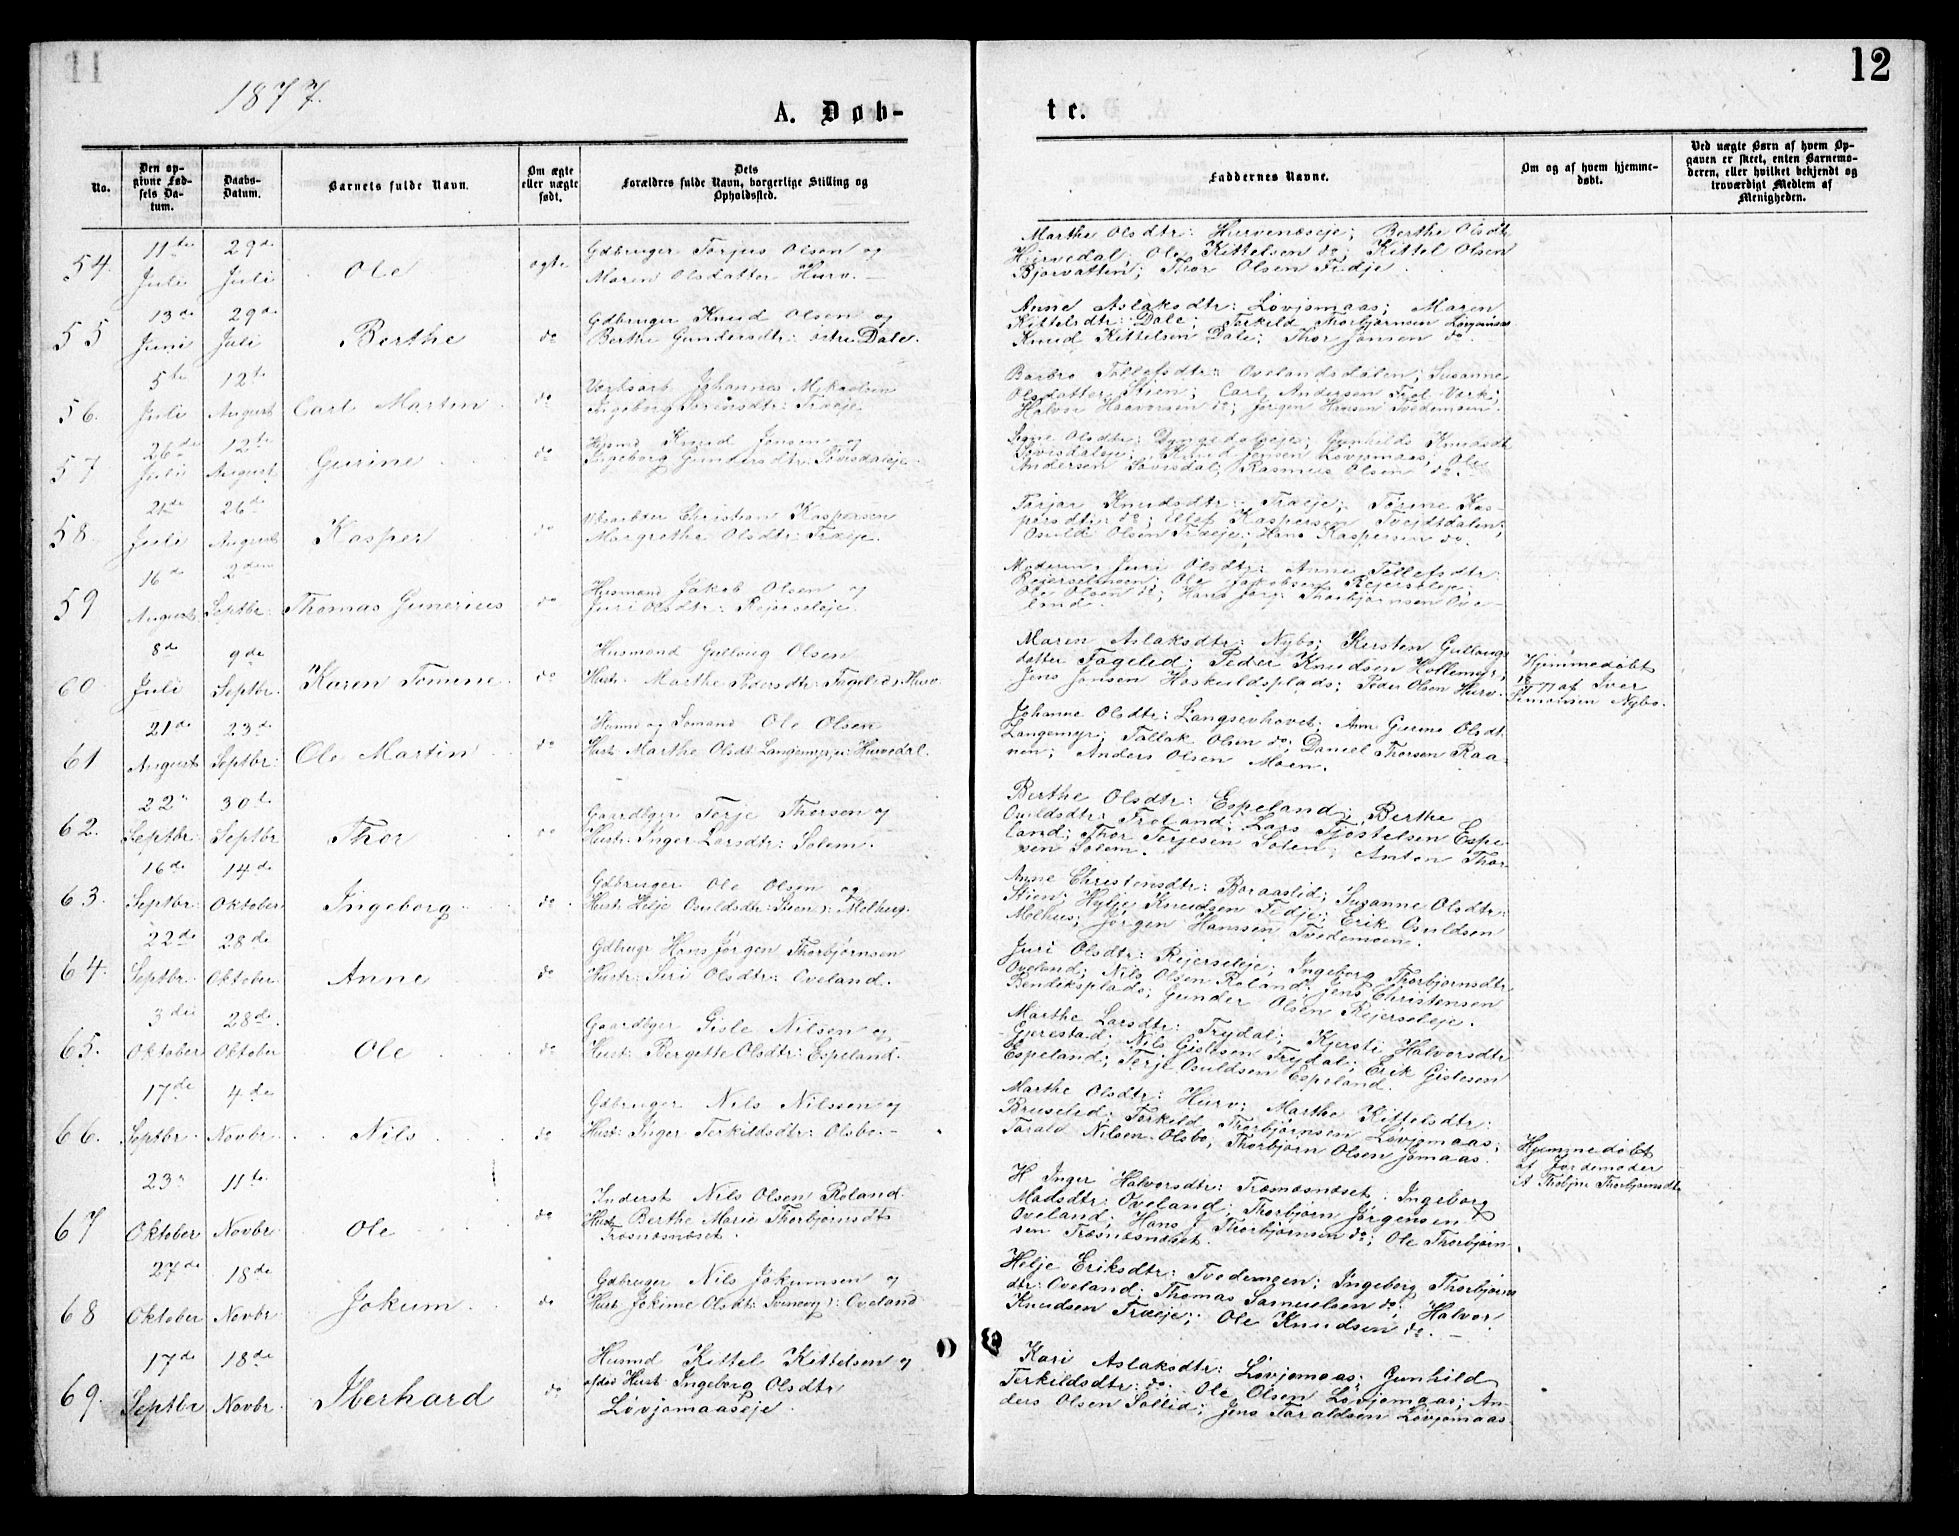 11
12
1877.
A. Døb-
te.
No.
Den op-
givne Fød-
sels Da-
tum.
Daabs-
Datum.
Barnets fulde Navn.
Om ægte
eller uægte
født.
Dets
Forældres fulde Navn, borgerlige Stilling og
Opholdssted.
Faddernes Navne.
Om og af hvem hjemme-
døbt.
Ved uægte Børn af hvem Op-
gaven er skeet, enten Barnemo-
deren, eller hvilket bekjendt og
troværdigt Medlem af
Menigheden.
54. 11te Juli 29de Juli Ole ægte
Gdbruger Torjus Olsen og
Maren Olsdatter Hurv. —
Marthe Olsdtr: Hurvenæseje; Berthe Olsdtr
Hurvedal, Ole Kittelsen do; Kittel Olsen
Bjorvatten; Thor Olsen Fidje.
55 13de Juni 29de Juli Berthe do
Gdbruger Knud Olsen og
Berthe Gundersdtr: østre Dale.
Anne Aslaksdtr: Løvjomaas; Maren
Kittelsdtr: Dale; Terkild Thorbjørnsen Løvjomaas
Knud Kittelsen Dale; Thor Jensen do.
56. 5te Juli 12te August Carl Martin do
Verksarb. Johannes Mikaelsen
Ingeborg Sørensdtr: Træeje.
Barbro Tellefsdtr: Ovelandsdalen; Susanne
Olsdatter Stien; Carl Andersen Fred. Værk;
Halvor Haavorsen do; Jørgen Hansen Tvedemoen.
57 26de Juli 12te August Gurine do
Husmd Knud Jensen og
Ingeborg Gundersdtr: Lovisdaleje.
Signe Olsdtr: Gunhilde Knudsdt
Lovisdaleje; Knud Jensen Løvjomaas; Ole
Andersen Lovisdal; Rasmus Olsen do.
58. 21de Juli 26de August Kasper do
Vksarbder Christian Kaspersen
Margrethe Olsdtr: Træeje.
Torjar Knudsdtr: Træeje; Tomine Kas-
persdtr: do; Ellef Kaspersen Tveitdalen;
Osuld Olsen Træeje; Hans Kaspersen do.
59 16de August 2den Septbr: Thomas Gunerius do
Husmand Jakob Olsen og
Juri Olsdtr: Rejerseleje.
Moderen, Juri Olsdtr: Anne Tellefsdtr:
Rejerselmoen; Ole Jakobsen Rejerseleje;
Ole Olsen do; Hans Jørg: Thorbjørnsen Ove-
land.
60 8de Juli 9de Septbr. Karen Tomine. do
Husmand Gulloug Olsen
Hustr. Marthe Pedersdtr: Fagelid, Hurv.
Maren Aslaksdtr: Nybo; Kersten Gulloug-
datter Fagelid; Peder Knudsen Hollemyr;
Jens Jensen Høskuldsplads; Peder Olsen Hurv.
Hjemmedøbt
af Iver
Simonsen Nybo.
61 21de August 23de Septbr: Ole Martin do
Husmd og Sømand Ole Olsen
Hust: Marthe Olsdt: Langemyr, u: Hurvedal.
Johanne Olsdtr: Langsevhovet; Ann Gurine Olsdt.
Langemyr; Tallak Olsen do; Daniel Thorsen Raa-
nen; Anders Olsen Moen.
62. 22 Septbr. 30te Septbr Thor do
Gaardbger Terje Thorsen og
Hustr: Inger Larsdtr: Solem.
Berthe Olsdtr: Espeland; Berthe
Osuldsdtr: Froland; Lars Tjostelsen Espe-
land; Thor Terjesen Solem; Anton Thor-
sen Solem.
63. 16de Septbr. 14de Oktober Ingeborg do
Gdbruger Ole Olsen og
Hust: Helje Osuldsdtr: Stien): Molhus.
Anne Christensdtr: Boraaslid; Susanne Olsdtr:
Stien; Hylje Knudsen Fidje; Erik Osuldsen
Molhus; Jørgen Hanssen Tvedemoen.
64. 22de Septbr. 28de Oktober Anne do
Gdbrugr Hans Jørgen Thorbjørnsen
Hustr: Siri Olsdtr: Oveland.
Juri Olsdtr: Rejerseleje; Ingeborg Thorbjørnsdtr
Oveland; Nils Olsen Roland; Jens Christensen
Bendiksplads; Gunder Olsen Rejerseleje.
65. 3die Oktober 28de Oktober Ole do
Gaardbger Gisle Nilsen og
Hust: Bergette Olsdtr: Espeland.
Marthe Larsdtr: Trydal; Kjersti Halvorsdtr
Gjerestad; Nils Gislesen Trydal; Erik Gislesen
Espeland; Terje Osuldsen Espeland.
66. 17de Septbr. 4de Novbr. Nils do
Gdbruger Nils Nilssen og
Hust: Inger Terkildsdtr: Olsbo. —
Marthe Olsdtr: Hurv; Marthe Kittelsdtr:
Bruselid; Terkild Thorbjørnsen Løvjomaas;
Tarald Nilsen Olsbo; Thorbjørn Olsen Jomaas.
67 23 Oktober 11te Novbr Ole do
Inderst Nils Olsen Roland
Hust: Berthe Marie Thorbjørnsdtr
Træsnæsnæset.
H Inger Halvorsdtr: Træsnæsnæset; Ingeborg
Madsdtr: Oveland; Thorbjørn Jørgensen
Oveland; Hans J. Thorbjørnsen do; Ole Thorbjørn-
sen Træsnæsnæset.
Hjemmedøbt
af Jordemoder
Thorbjørnsdtr
68 27de Oktober 18de Novbr. Jokum. do
Gdbruger Nils Jokumsen og
Hust Jokime Olsdt: Oveland
Helje Eriksdtr: Tvedemoen; Ingeborg Thorbjørns
dtr: Oveland; Thomas Samuelsen do; Halvor
Knudsen Træeje; Ole Knudsen do. —
69. 17de Septbr 18de Novbr. Iberhard do
Husmd Kittel Kittelsen og
afdøde Hust: Ingeborg Olsdtr
Løvjomaaseje.
Kari Aslaksdtr: Løvjomaas; Gunhild
Terkildsdtr: do; Ole Olsen Løvjomaas; An-
ders Olsen Sollid; Jens Taraldsen Løvjomaas